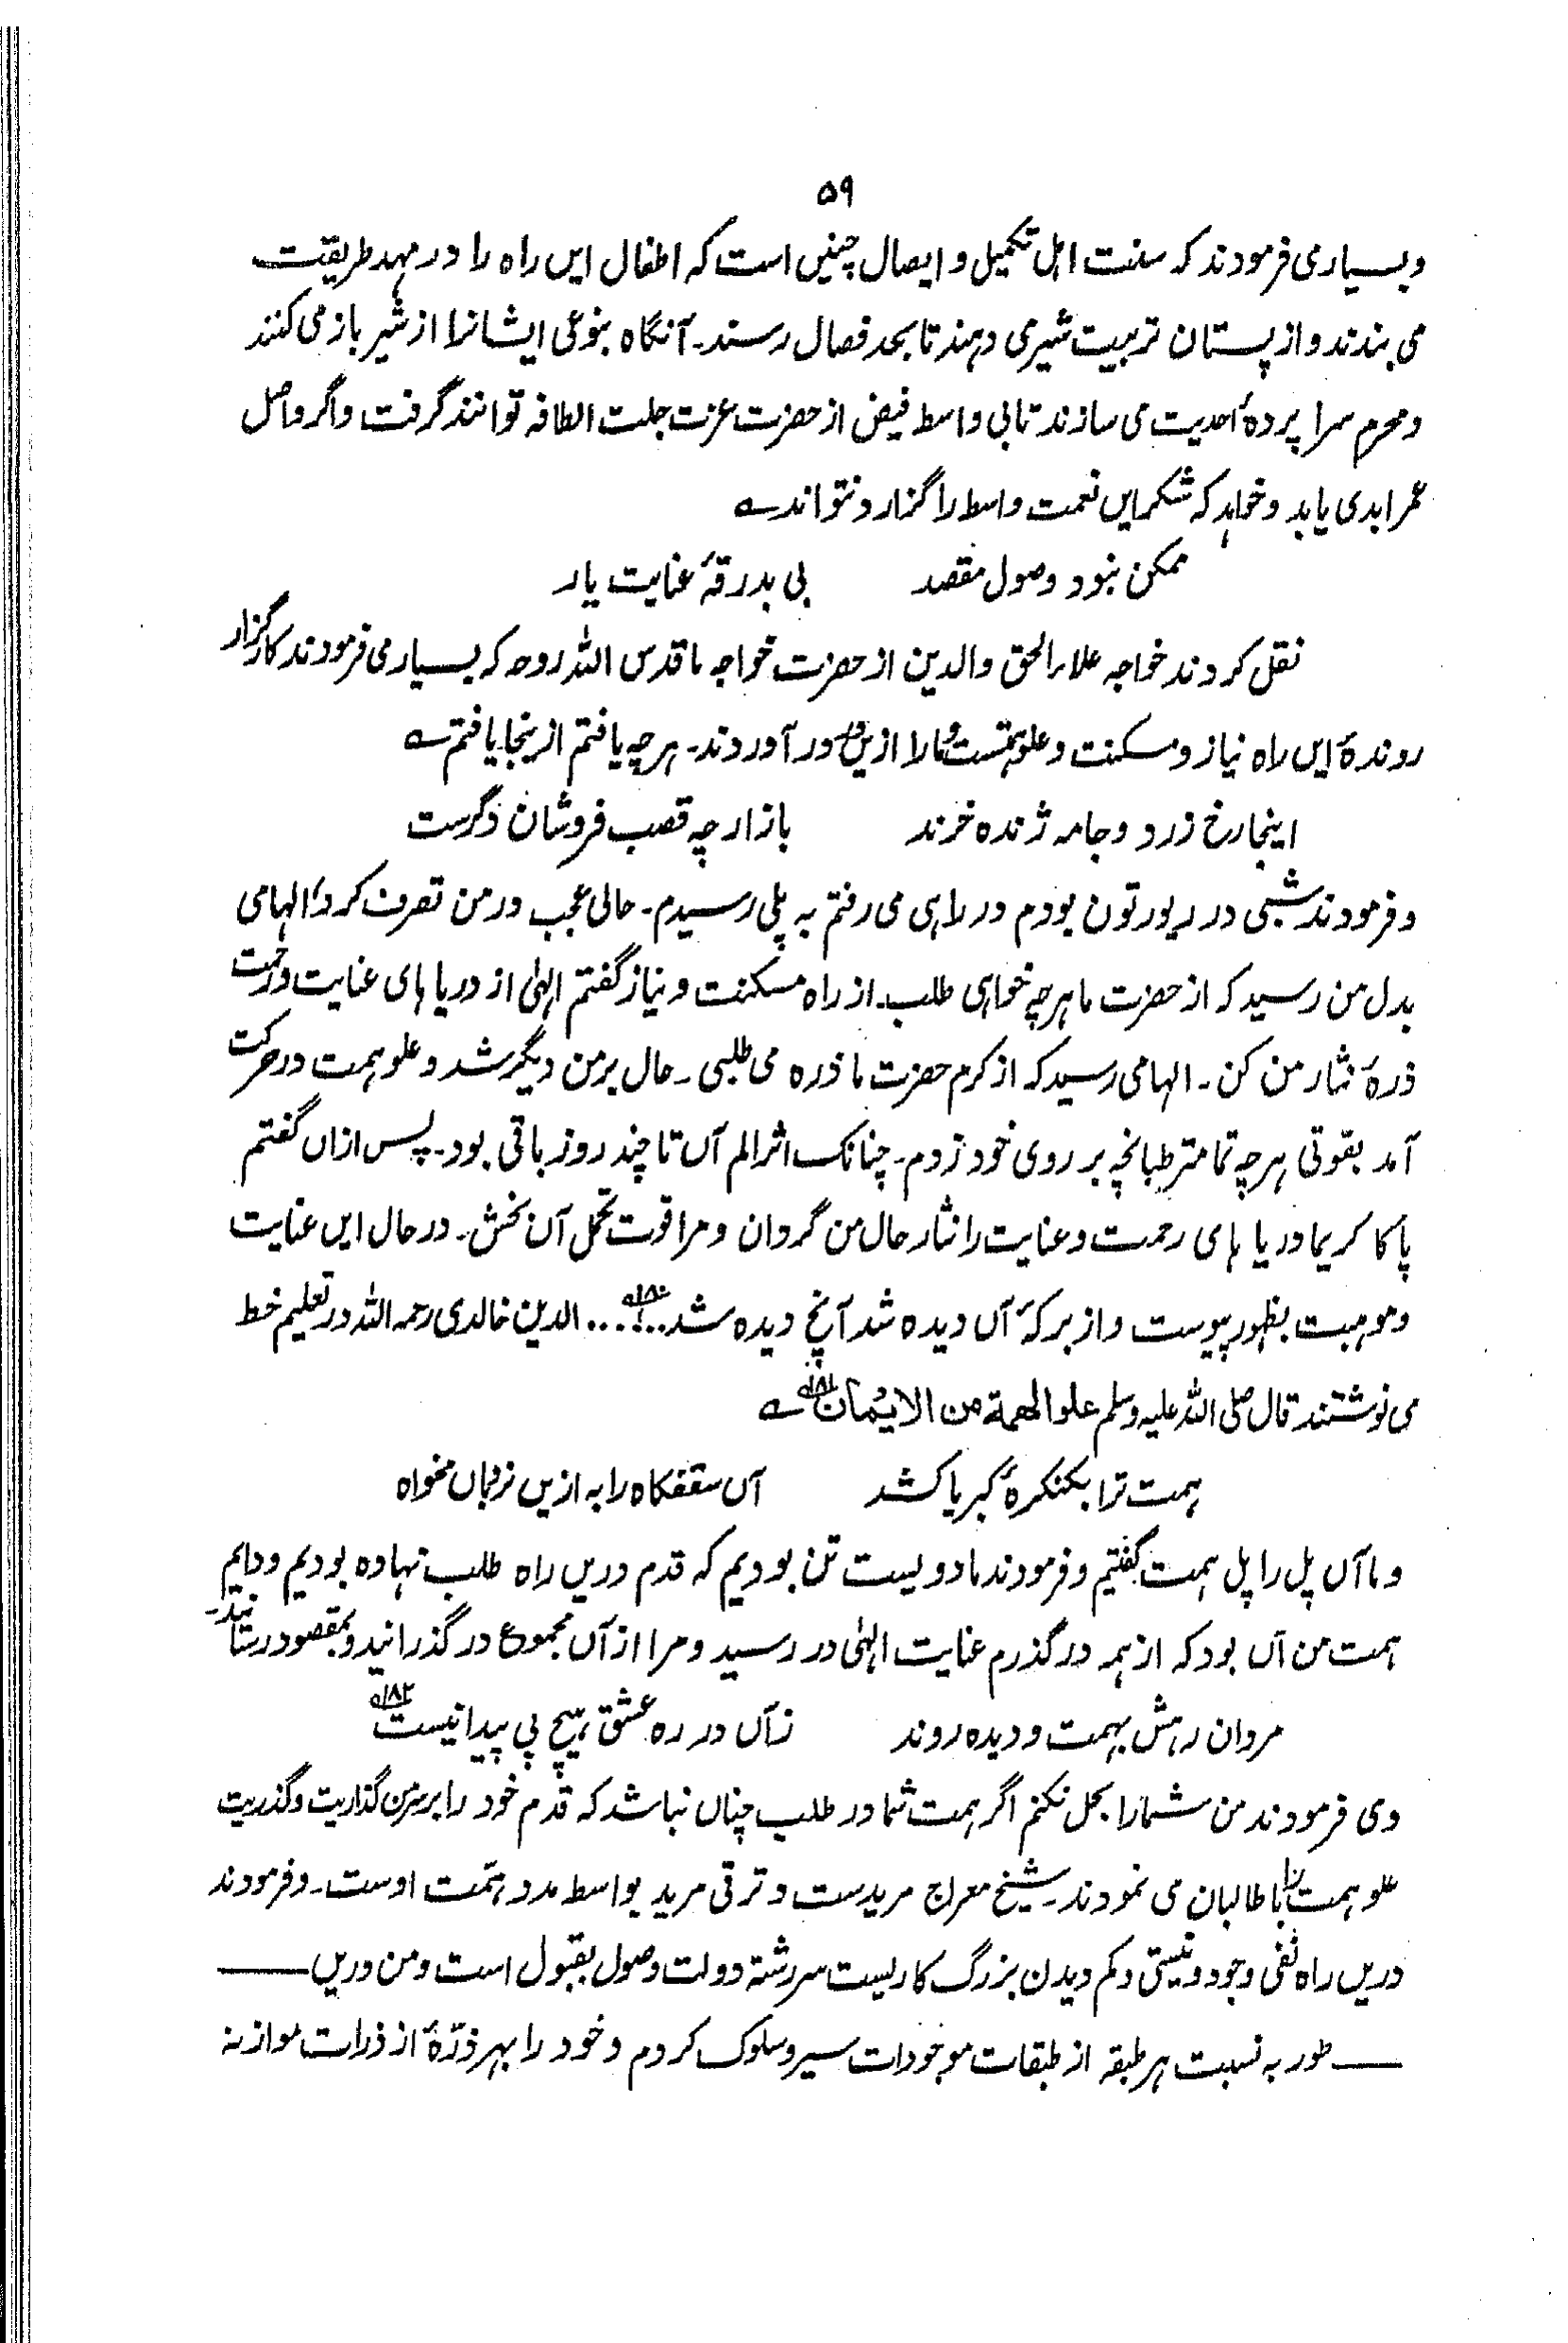 ۵۹
و بسیار می فرمودند که سنت اہل تکمیل و ایصال چنیں است که اطفال ایں راه را در مہد طریقت
می بندند و از پستان تربیت شیر می دہند تا بحد فصال رسند۔ آنگاه بنوعی ایشانرا از شیر باز می کنند
و محرم سرا پردۂ احدیت می سازند تا بی واسطہ فیض از حضرت عزت جلت الطافہ توانند گرفت و اگر واصل
عمر ابدی یابد و خواہد که شکر ایں نعمت واسطہ را گزارد نتواند ؎
ممکن نبود وصول مقصد بی بدرقۂ عنایت یار
نقل کردند خواجہ علاء الحق والدین از حضرت خواجہ ما قدس اللہ روحہ که بسیار می فرمودند کار گزار
روندۂ ایں راه نیاز و مسکنت و علو ہمتست و ما را ازیں در در آوردند۔ ہر چہ یافتم ازینجا یافتم ؎
اینجا رخ زرد و جامہ ژنده خرند بازارچہ قصب فروشان دگرست
و فرمودند شبی در ریورتون بودم در راہی می رفتم بہ پلی رسیدم۔ حالی عجب در من تصرف کرد، الہامی
بدل من رسید که از حضرت ما ہرچہ خواہی طلب۔ از راه مسکنت و نیاز گفتم الہٰی از دریا ہای عنایت و رحمت
ذرۂ نثار من کن۔ الہامی رسید که از کرم حضرت ما ذره می طلبی۔ حال بر من دیگر شد و علو ہمت در حرکت
آمد بقوتی ہرچہ تمامتر طبانچہ بر روی خود زدم۔ چنانک اثر الم آں تا چند روز باقی بود۔ پس ازاں گفتم
پاکا کریما دریا ہای رحمت و عنایت را نثار حال من گردان و مرا قوت تحمل آن بخش۔ در حال ایں عنایت
و موہبت بظہور پیوست و از برکۂ آں دیده شد آنچ دیده شد....... ۱۸۰؎ الدین خالدی رحمہ اللہ در تعلیم خط
می نوشتند قال صلی اللہ علیہ وسلم علو الهمة من الایمان ۱۸۱؎ ؎
ہمت ترا بکنکرۂ کبریا کشد آں سقفگاه را بہ ازیں نردباں مخواه
و ما آں پل را پل ہمت گفتیم و فرمودند ما دویست تن بودیم که قدم دریں راه طلب نہاده بودیم و دایم
ہمت من آں بود که از ہمہ درگذرم عنایت الہٰی در رسید و مرا از آں مجموع درگذرانید و بمقصود رسانید۔
مردان رہش بہمت و دیده روند زآں در ره عشق ہیچ پی پیدا نیست ۱۸۲؎
وی فرمودند من شما را بحل نکنم اگر ہمت شما در طلب چناں نباشد که قدم خود را بر سر من گذاریت و گذریت
علو ہمت را با طالبان می نمودند۔ شیخ معراج مریدست و ترقی مرید بواسطہ مدد ہمّت اوست۔ و فرمودند
دریں راه نفی وجود و نیستی و کم دیدن بزرگ کاریست سررشتہ دولت وصول بقبول است و من دریں ——
—— طور بہ نسبت ہر طبقہ از طبقات موجودات سیر و سلوک کردم و خود را بہر ذرّۂ از ذرات موازنہ